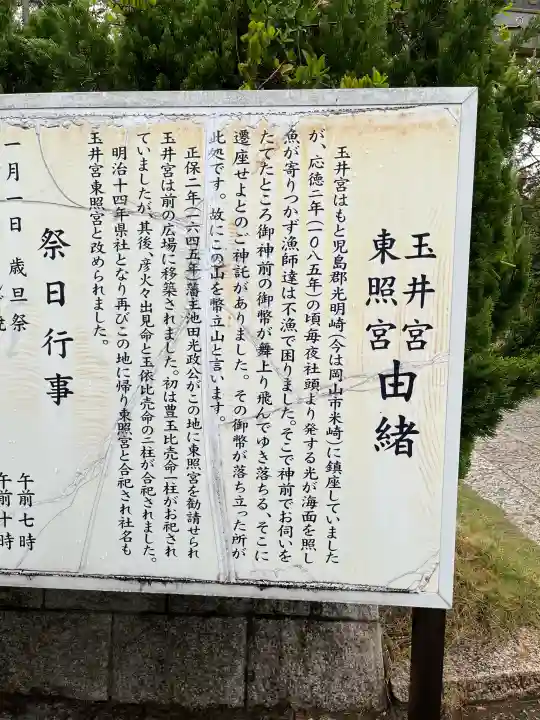 玉井宮
東照宮
由緒
玉井宮はもと児島郡光明崎(今は岡山市米崎)に鎮座していました
が、応徳二年(一〇八五年)の頃毎夜社頭より発する光が海面を照し
魚が寄りつかず漁師達は不漁で困りました。そこで神前でお伺いを
たてたところ御神前の御幣が舞上り飛んでゆき落ちる、そこに
遷座せよとのご神託がありました。その御幣が落ち立った所が
此処です。故にこの山を幣立山と言います。
正保二年(一六四五年)藩主池田光政公がこの地に東照宮を勧請せられ
玉井宮は前の広場に移築されました。初は豊玉比売命一柱がお祀され
ていましたが、其後、彦火々出見命と玉依比売命の二柱が合祀されました。
明治十四年県社となり再びこの地に帰り東照宮と合祀され社名も
玉井宮東照宮と改められました。
祭日行事
午前七時
一月一日 歳旦祭
午前十時